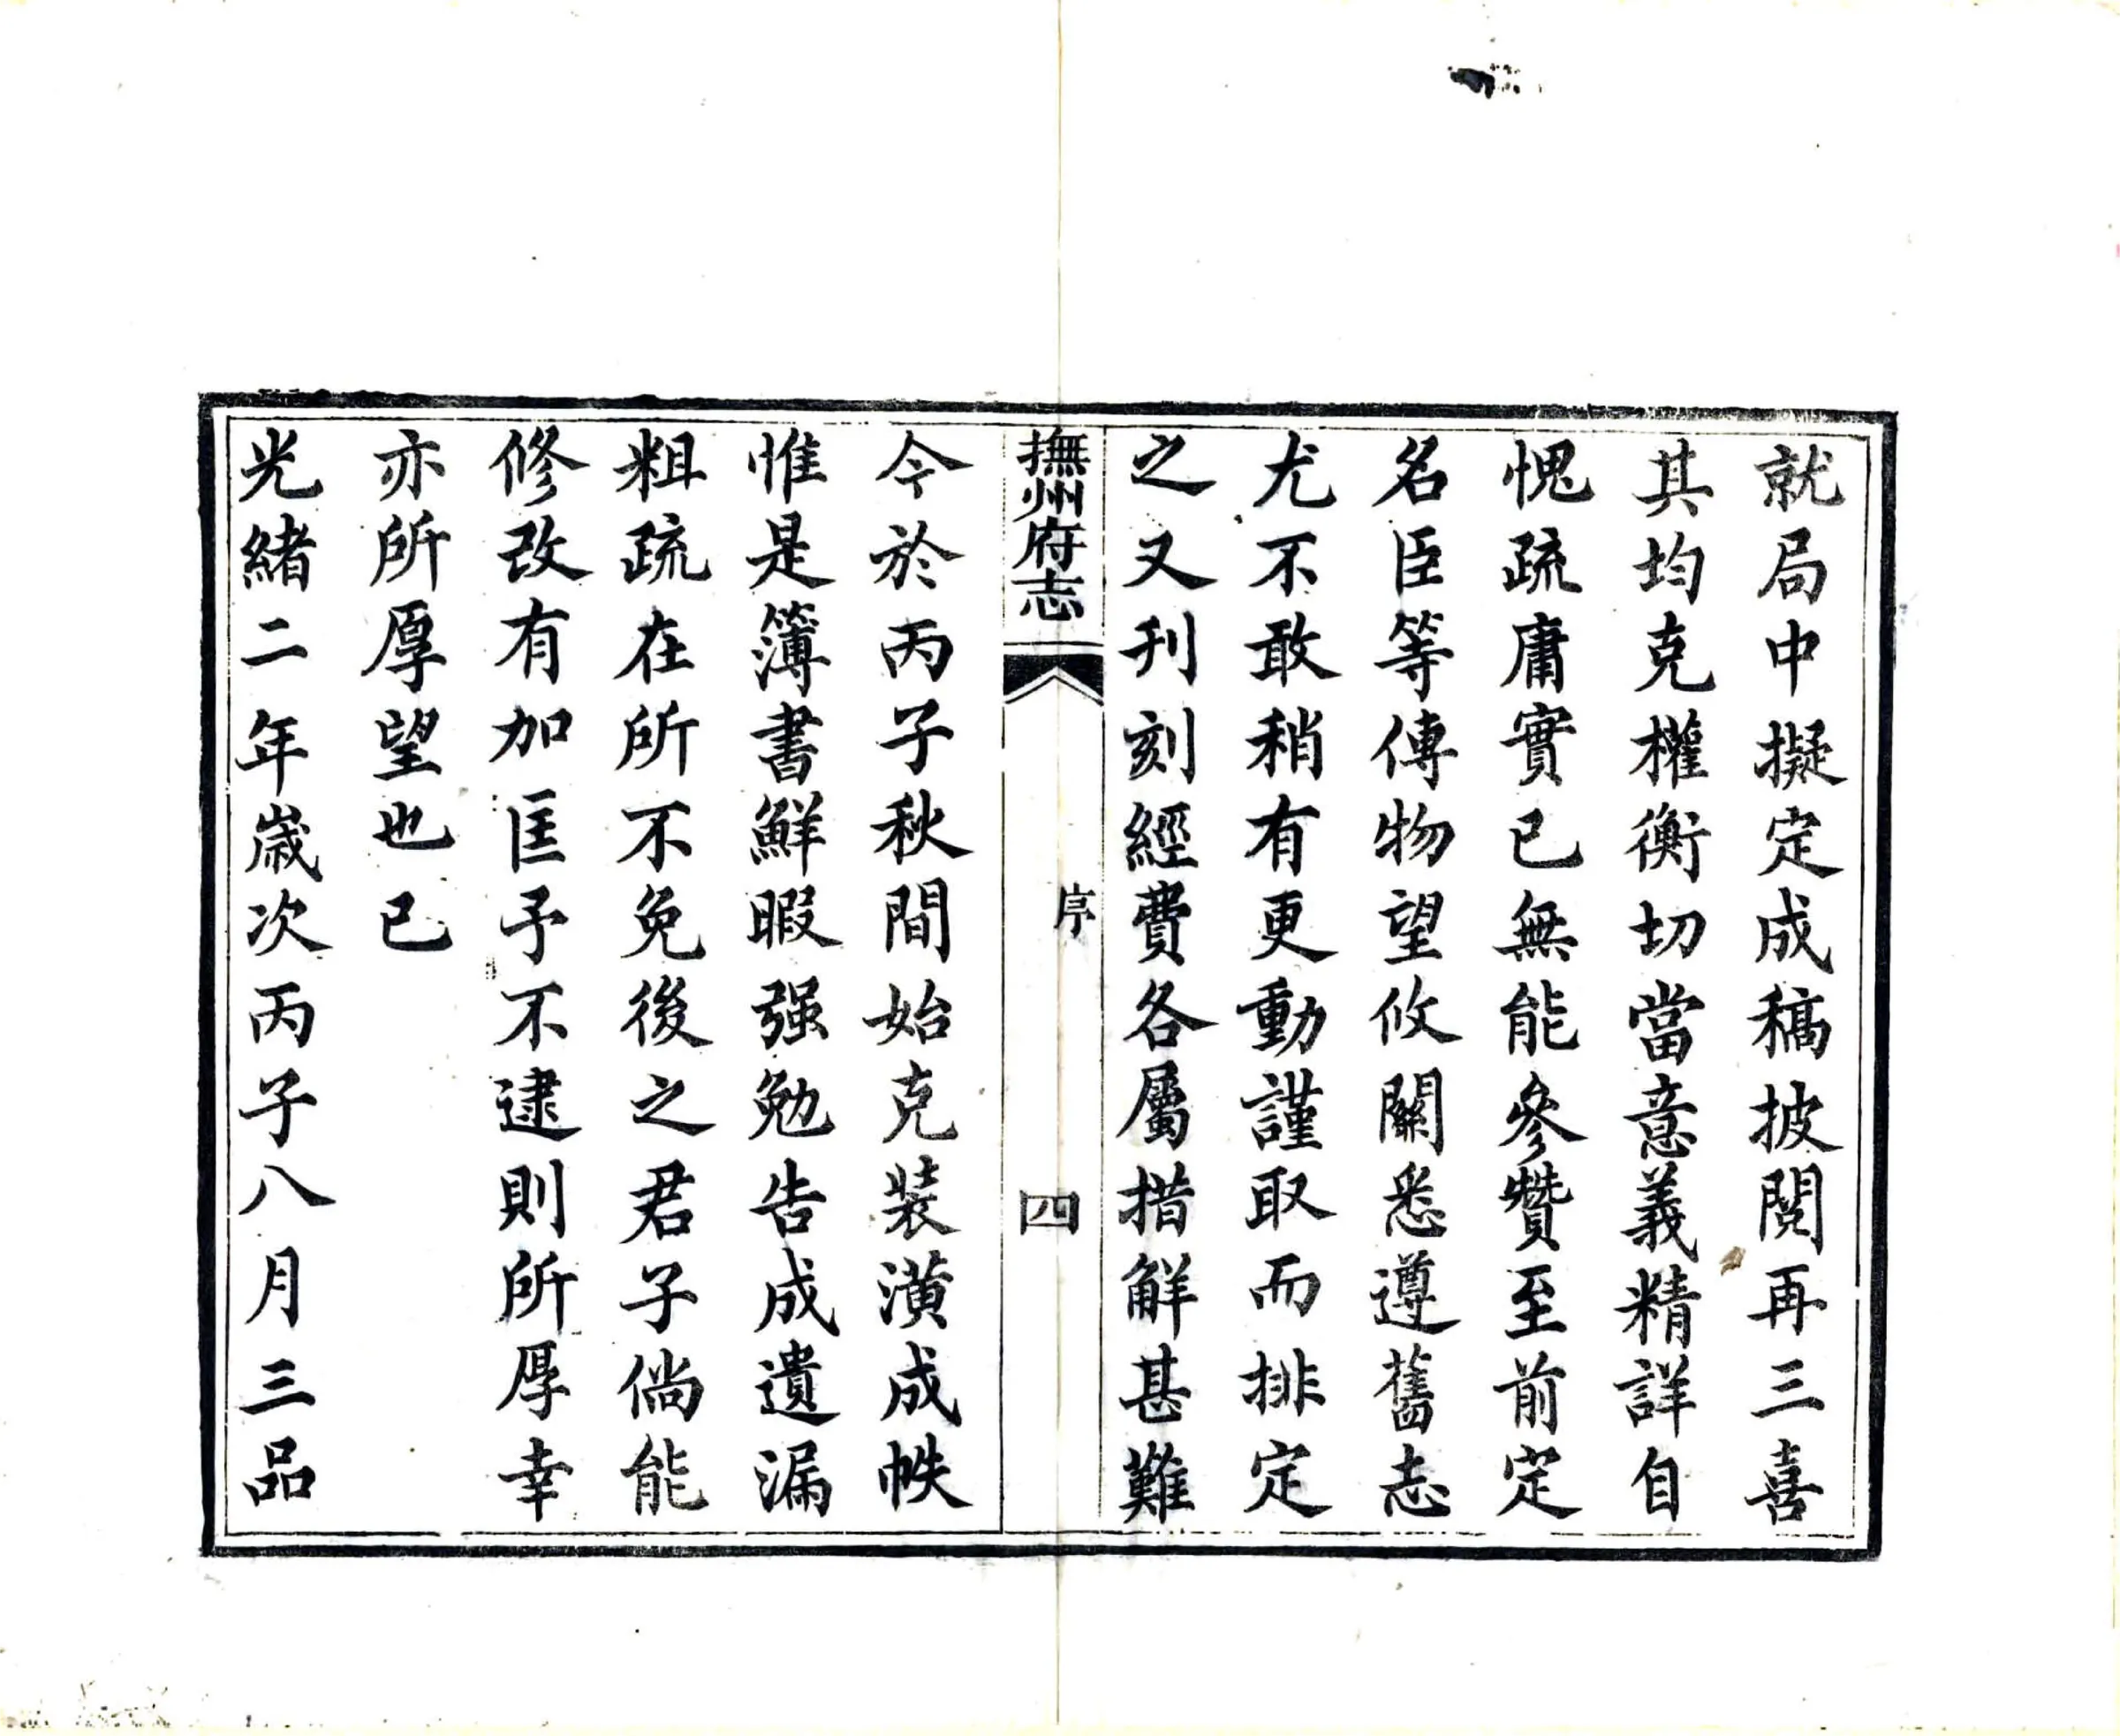 就局中擬定成稿披閱再三喜
其均克權衡切當意義精詳自
愧疏庸實已無能參贊至前定
名臣等傳物望攸關悉遵舊志
尤不敢稍有更動謹取而排定
之又刋刻經費各屬措解甚難
撫州府志
序
四
今於丙子秋間始克装潢成帙
惟是簿書鮮暇强勉告成遺漏
粗疏在所不免後之君子倘能
修改有加匡予不逮則所厚幸
亦所厚望也已
光緒二年歲次丙子八月三品